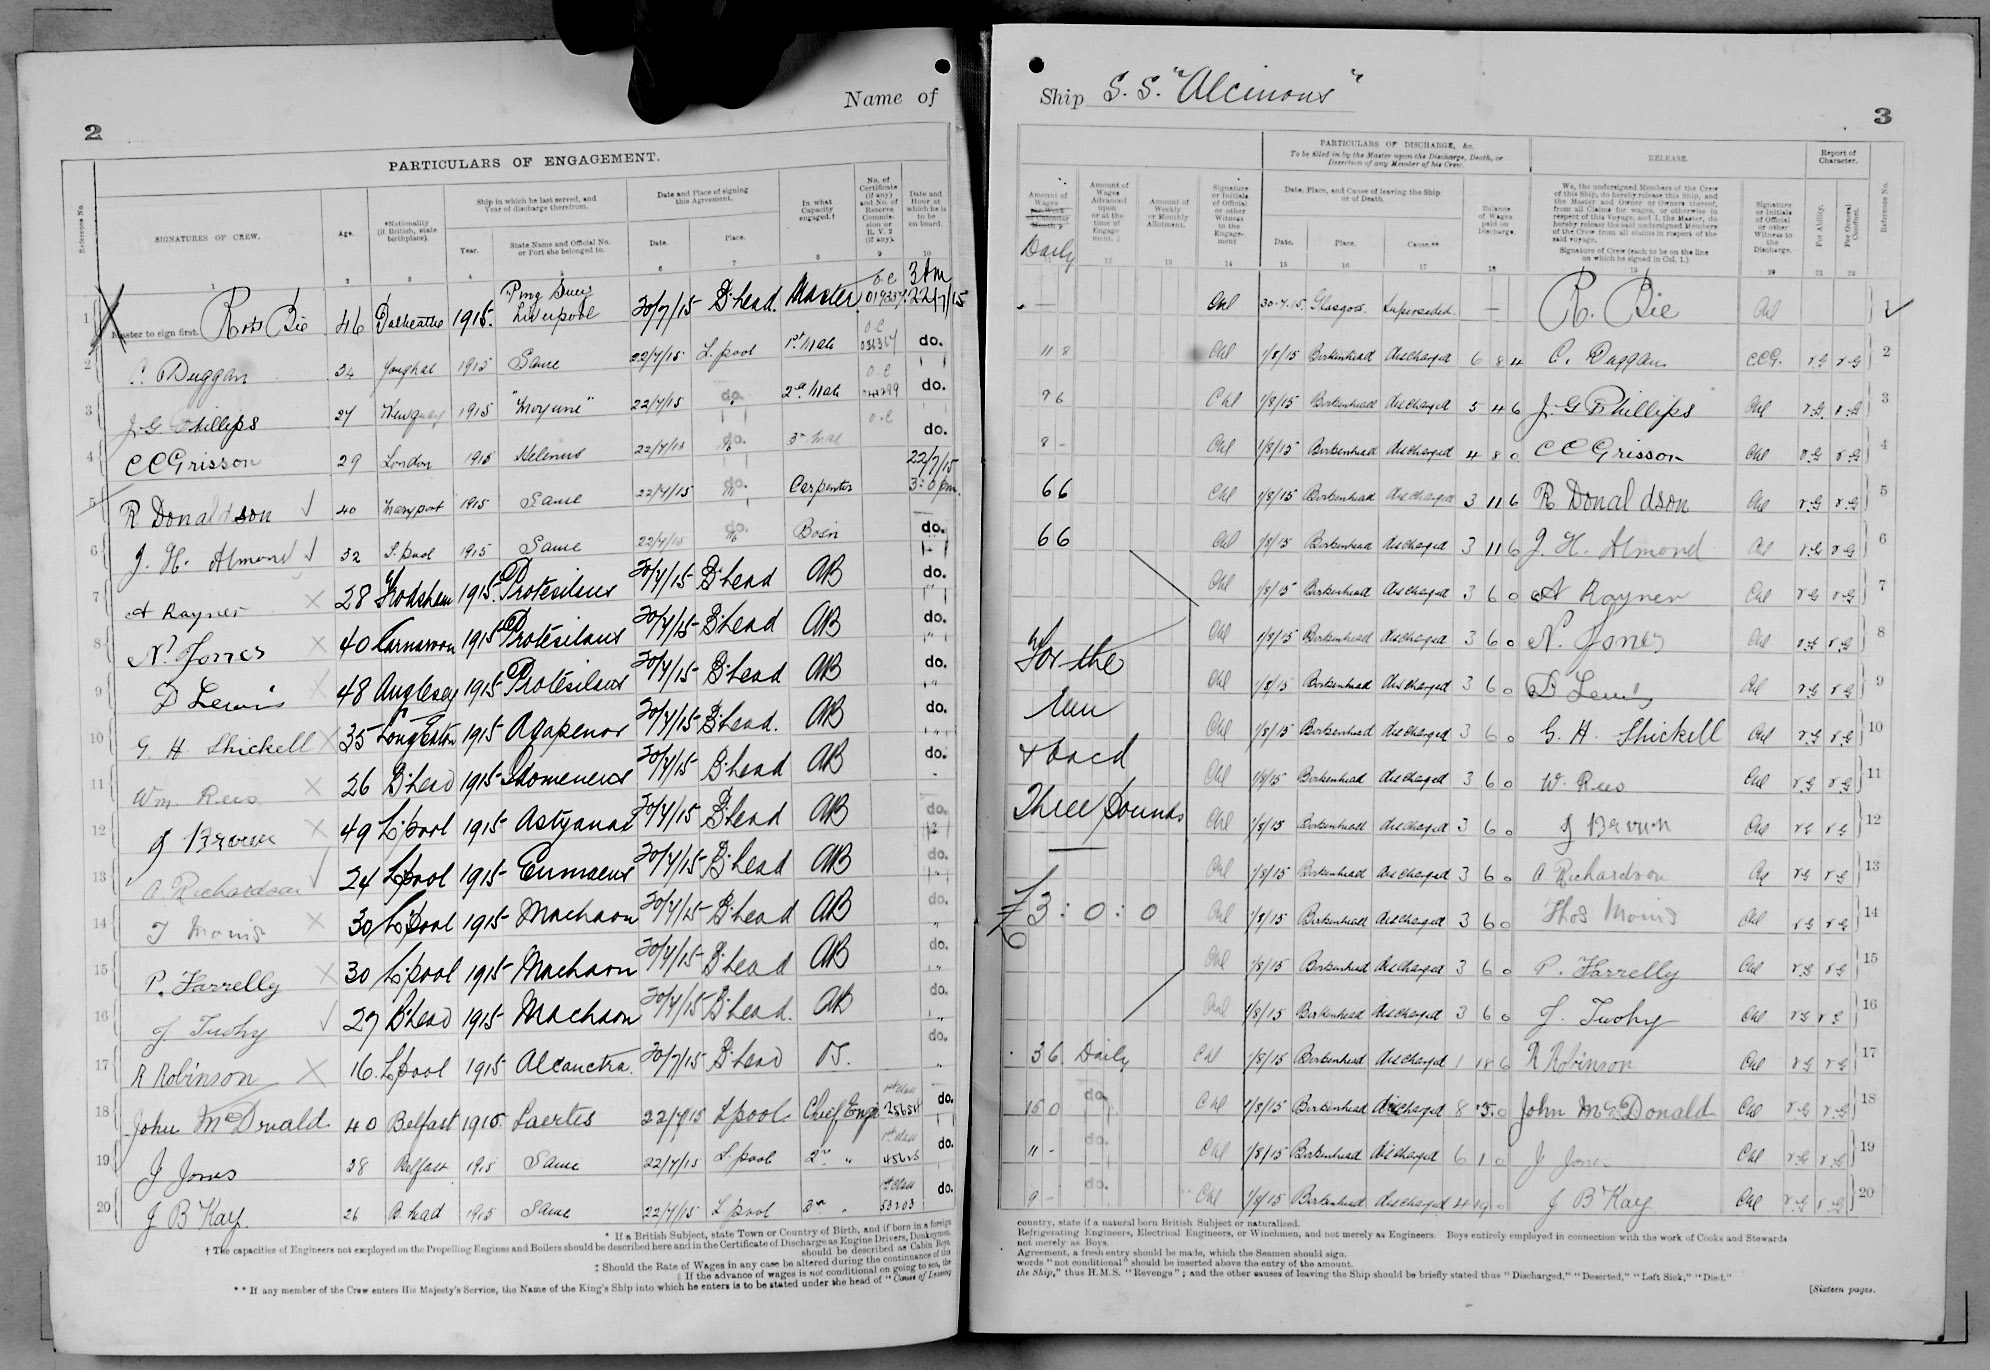 2
Name of
PARTICULARS OF ENGAGEMENT.
Reference No.
SIGNATURES OF CREW.
Age.
*Nationality (if British, state birthplace).
Ship in which he last served, and Year of discharge therefrom.
Year.
State Name and Official No. or Port she belonged to.
Date and Place of signing this Agreement.
Date.
Place.
In what Capacity engaged.†
No. of Certificate (if any) and No. of Reserve Commission or R. V. 2 (if any).
Date and Hour at which he is to be on board.
1 2 3 4 5 6 7 8 9 10
1 Master to sign first. Robt Bie 46 Dalbeattie 1915. Ping Suey Liverpool 20/7/15 B'head. Master O.C 3 Am 22/7/15
2 C. Duggan 34 Youghal 1915 Same 22/7/15 L.pool 1st Mate O.C do.
3 J. G. Phillips 27 Newquay 1915 "Moyune" 22/7/15 do. 2nd Mate O.C do.
4 C C Grisson 29 London 1915 Helenus 22/7/15 do. 3rd Mate O.C do.
5 R Donaldson 40 Maryport 1915 Same 22/7/15 do. Carpenter 22/7/15 3:0 pm.
6 J. H. Almond 32 L.pool 1915 Same 22/7/15 do. Bosn do.
7 A Rayner × 28 Frodsham 1915. Protesilaus 20/7/15 B'head AB do.
8 N. Jones × 40 Carnarvon 1915 Protesilaus 20/7/15 B'head AB do.
9 D Lewis × 48 Anglesey 1915 Protesilaus 20/7/15 B'head AB do.
10 G. H. Shickell × 35 Long Eaton 1915 Agapenor 20/7/15 B'head. AB do.
11 Wm Rees × 26 B'head 1915 Idomeneus 20/7/15 B'head AB do.
12 J Brown × 49 L'pool 1915 Astyanax 20/7/15 B'head AB do.
13 A. Richardson 24 L'pool 1915 Eumaeus 20/7/15 B'head AB do.
14 T Morris × 30 L'pool 1915 Machaon 20/7/15 B'head AB do.
15 P. Farrelly × 30 L'pool 1915 Machaon 20/7/15 B'head AB do.
16 J Tuohy 27 B'head 1915 Machaon 20/7/15 B'head. AB do.
17 R Robinson × 16. L'pool 1915 Alcanctra. 20/7/15 B'head O.S. do.
18 John McDonald 40 Belfast 1915 Laertes 22/7/15 L'pool. Chief Engr 1st class do.
19 J Jones 38 Belfast 1915 Same 22/7/15 L.pool 2nd " 1st class do.
20 J B Kay. 26 B.head 1915 Same 22/7/15 L pool 3rd " 1st class 53203 do.
* If a British Subject, state Town or Country of Birth, and if born in a foreign
† The capacities of Engineers not employed on the Propelling Engines and Boilers should be described here and in the Certificate of Discharge as Engine Drivers, Donkeymen,
should be described as Cabin Boys,
‡ Should the Rate of Wages in any case be altered during the continuance of this
|| If the advance of wages is not conditional on going to sea, the
** If any member of the Crew enters His Majesty's Service, the Name of the King's Ship into which he enters is to be stated under the head of "Cause of Leaving
Ship S. S. "Alcinous"
3
PARTICULARS OF DISCHARGE, &c.
To be filled in by the Master upon the Discharge, Death, or Desertion of any Member of his Crew.
RELEASE.
Report of Character.
Amount of Wages
Daily
Amount of Wages Advanced upon or at the time of Engagement.
Amount of Weekly or Monthly Allotment.
Signature or Initials of Official or other Witness to the Engagement
Date, Place, and Cause of leaving the Ship or of Death.
Date.
Place.
Cause.**
Balance of Wages paid on Discharge.
We, the undersigned Members of the Crew of this Ship, do hereby release this Ship, and the Master and Owner or Owners thereof, from all Claims for wages, or otherwise in respect of this Voyage, and I, the Master, do hereby release the said undersigned Members of the Crew from all claims in respect of the said voyage.
Signature of Crew (each to be on the line on which he signed in Col. 1.)
Signature or Initials of Official or other Witness to the Discharge.
For Ability.
For General Conduct.
Reference No.
12 13 14 15 16 17 18 19 20 21 22
— 30.7.15. Glasgow. Superseded. — R. Bie 1
11 8 1/8/15 Birkenhead discharged 6 8 4 C. Duggan V.G V.G 2
9 6 1/8/15 Birkenhead discharged 5 4 6 J. G Phillips V.G V.G 3
8 - 1/8/15 Birkenhead discharged 4 8 0 C C Grisson V.G V.G 4
6 6 1/8/15 Birkenhead discharged 3 11 6 R Donaldson V.G V.G 5
6 6 1/8/15 Birkenhead discharged 3 11 6 J. H. Almond V.G V.G 6
1/8/15 Birkenhead discharged 3 6 0 A Rayner V.G V.G 7
1/8/15 Birkenhead discharged 3 6 0 N. Jones V.G V.G 8
For the 1/8/15 Birkenhead discharged 3 6 0 D Lewis V.G V.G 9
Run 1/8/15 Birkenhead discharged 3 6 0 G. H. Shickell V.G V.G 10
+ back 1/8/15 Birkenhead discharged 3 6 0 W. Rees V.G V.G 11
Three Pounds 1/8/15 Birkenhead discharged 3 6 0 J Brown V.G V.G 12
1/8/15 Birkenhead discharged 3 6 0 A. Richardson V.G V.G 13
£3 : 0 : 0 1/8/15 Birkenhead discharged 3 6 0 Thos Morris V.G V.G 14
1/8/15 Birkenhead discharged 3 6 0 P. Farrelly V.G V.G 15
1/8/15 Birkenhead discharged 3 6 0 J. Tuohy V.G V.G 16
3 6 Daily 1/8/15 Birkenhead discharged 1 18 6 R Robinson V.G V.G 17
15 0 do. 1/8/15 Birkenhead discharged 8 5 0 John McDonald V.G V.G 18
11 - do. 1/8/15 Birkenhead discharged 6 1 0 J Jones V.G V.G 19
9 - do. 1/8/15 Birkenhead discharged 4 19 0 J B Kay. V.G V.G 20
country, state if a natural born British Subject or naturalized.
Refrigerating Engineers, Electrical Engineers, or Winchmen, and not merely as Engineers. Boys entirely employed in connection with the work of Cooks and Stewards
not merely as Boys.
Agreement, a fresh entry should be made, which the Seamen should sign.
words "not conditional" should be inserted above the entry of the amount.
the Ship," thus H.M.S. "Revenge"; and the other causes of leaving the Ship should be briefly stated thus "Discharged," "Deserted," "Left Sick," "Died."
[Sixteen pages.